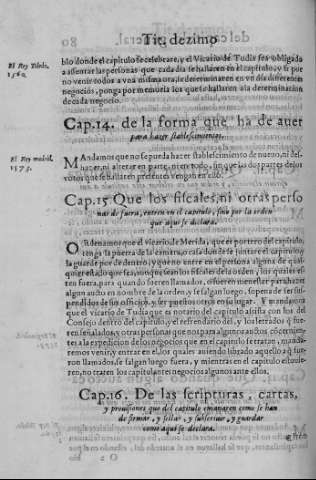 Tit. dezimo
blo donde el capitulo se celebrare, y el Vicario de Tudia sea obligado
El Rey Toledo,
1560.
a assentar las personas que cada dia se hallaren en el capitulo, y si por
no venir todos a vna misma ora, se determinaren en vn dia diferentes
negocios, ponga por memoria los que se hallaron a la determinacion
de cada negocio.
Cap. 14. de la forma que ha de auer
para hazer stablescimientos.
El Rey madrid.
1573.
Mandamos que no se pueda hazer stablescimiento de nueuo, ni des-
hazer, ni alterar en parte, ni en todo, sin que las dos partes de los
votos que se hallaren presentes vengan en ello.
Cap. 15 Que los fiscales, ni otras perso
nas de fuera, entren en el capitulo, sino por la orden
que aqui se declara.
Ordenamos que el vicario de Merida, que es portero del capitulo,
tenga la puerta de la camara o casa donde se juntare el capitulo, y
la guarde por de dentro, y que no entre en el persona alguna de qual-
quier estado que sea, aunque sean los fiscales de la orden, los quales es-
ten fuera, para quando fueren llamados, o fuere menester para hazer
algun aucto en nombre de la orden, y se salgan luego, so pena de ser sus-
pendidos de sus officios, y ser puestos otros en su lugar. Y mandamos
que el vicario de Tudia que es notario del capitulo assista con los del
Consejo dentro del capitulo, y el refrendario del, y los letrados que fue-
ren señalados, y otras personas que no para algunos auctos concernien-
tes a la expedicion de los negocios que en el capitulo se tratan, manda-
remos venir y entrar en el los quales auiendo librado aquello a que fue-
ron llamados, se salgan luego fuera, y mientras en el capitulo estuuie-
ren, no traten los capitulantes negocios algunos ante ellos.
Cap. 16. De las scripturas, cartas,
y prouisiones que del capitulo emanaren como se han
de firmar, y sellar, y subscriuir, y guardar
como aqui se declara.